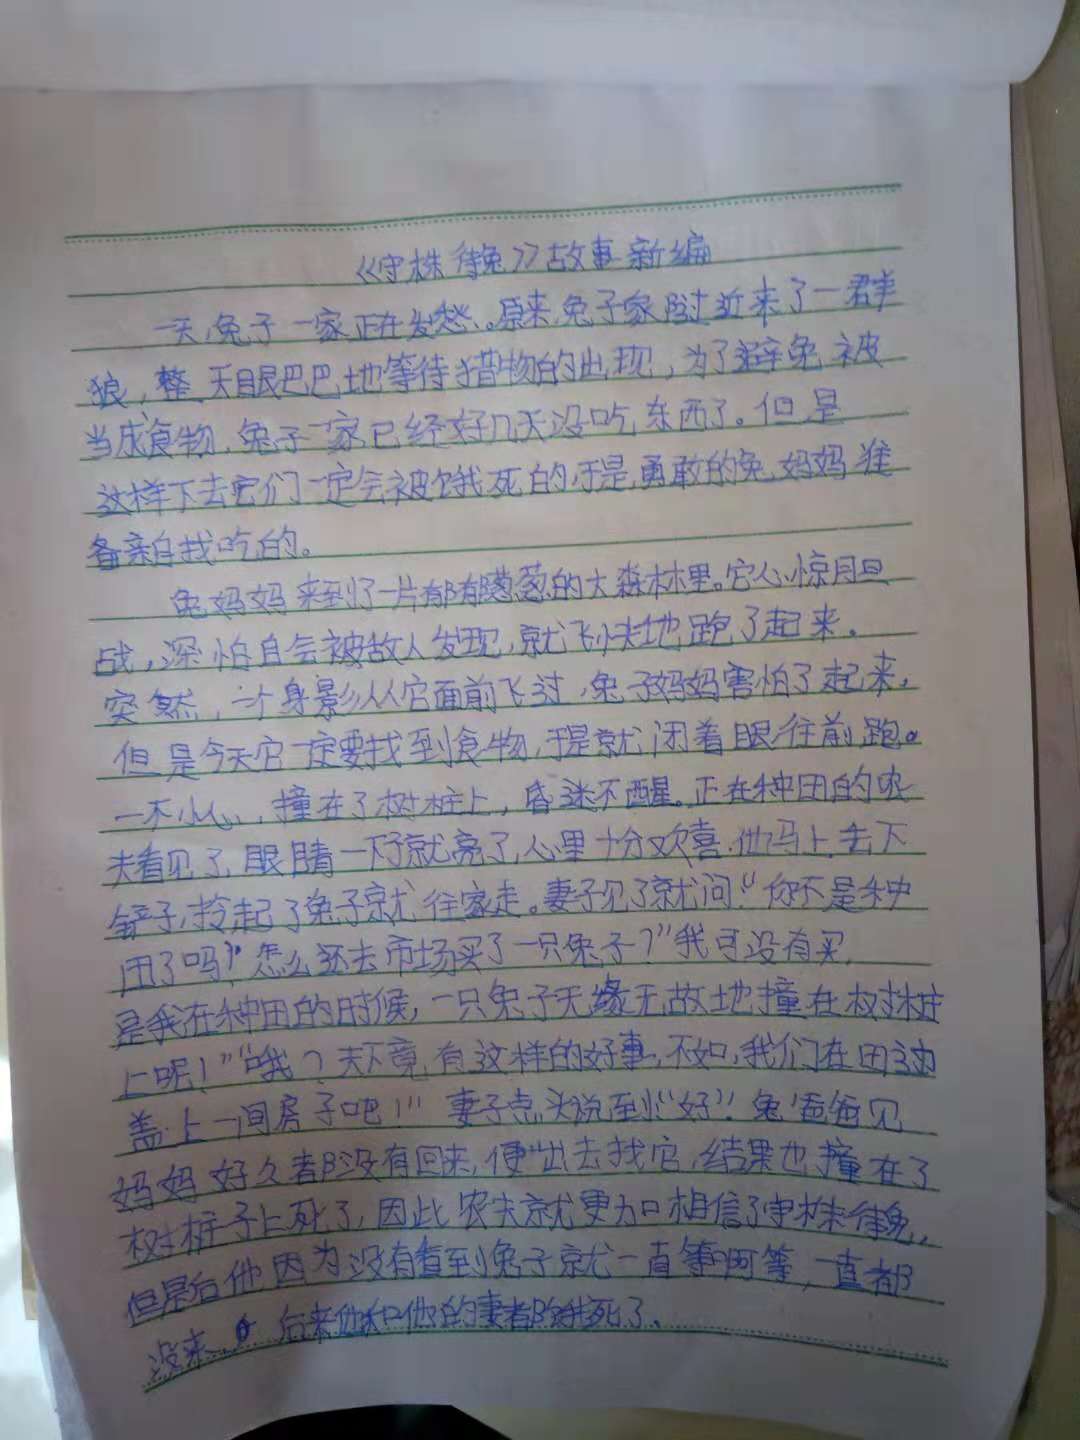 《守株待兔》故事新编
一天,兔子一家正在发愁。原来,兔子家附近来了一群
狼，整天眼巴巴地等待猎物的出现，为了避免被
当成食物，兔子一家已经好几天没吃东西了。但是
这样下去它们一定会被饿死的,于是,勇敢的兔妈妈准
备亲自找吃的。
兔妈妈来到了一片郁郁葱葱的大森林里。它心惊胆
战，深怕自会被敌人发现，就飞快地跑了起来。
突然，一个身影从它面前飞过，兔子妈妈害怕了起来，
但是今天它一定要找到食物，于是就闭着眼往前跑。
一不小心，撞在了树桩上，昏迷不醒。正在种田的农
夫看见了，眼睛一下子就亮了，心里十分欢喜.他马上丢下
铲子，拎起了兔子就往家走。妻子见了就问:“你不是种
田了吗?怎么还去市场买了一只兔子？”“我可没有买，
是我在种田的时候，一只兔子无缘无故地撞在树桩
上呢！”“哦？天下竟有这样的好事，不如，我们在田边
盖上一间房子吧！”妻子点头说到:“好”！兔爸爸见
妈妈好久都没有回来，便出去找它，结果也撞在了
树桩子上死了，因此农夫就更加相信了守株待兔，
但是后他因为没有看到兔子就一直等啊等，一直都
没来，后来他和他的妻都饿死了。